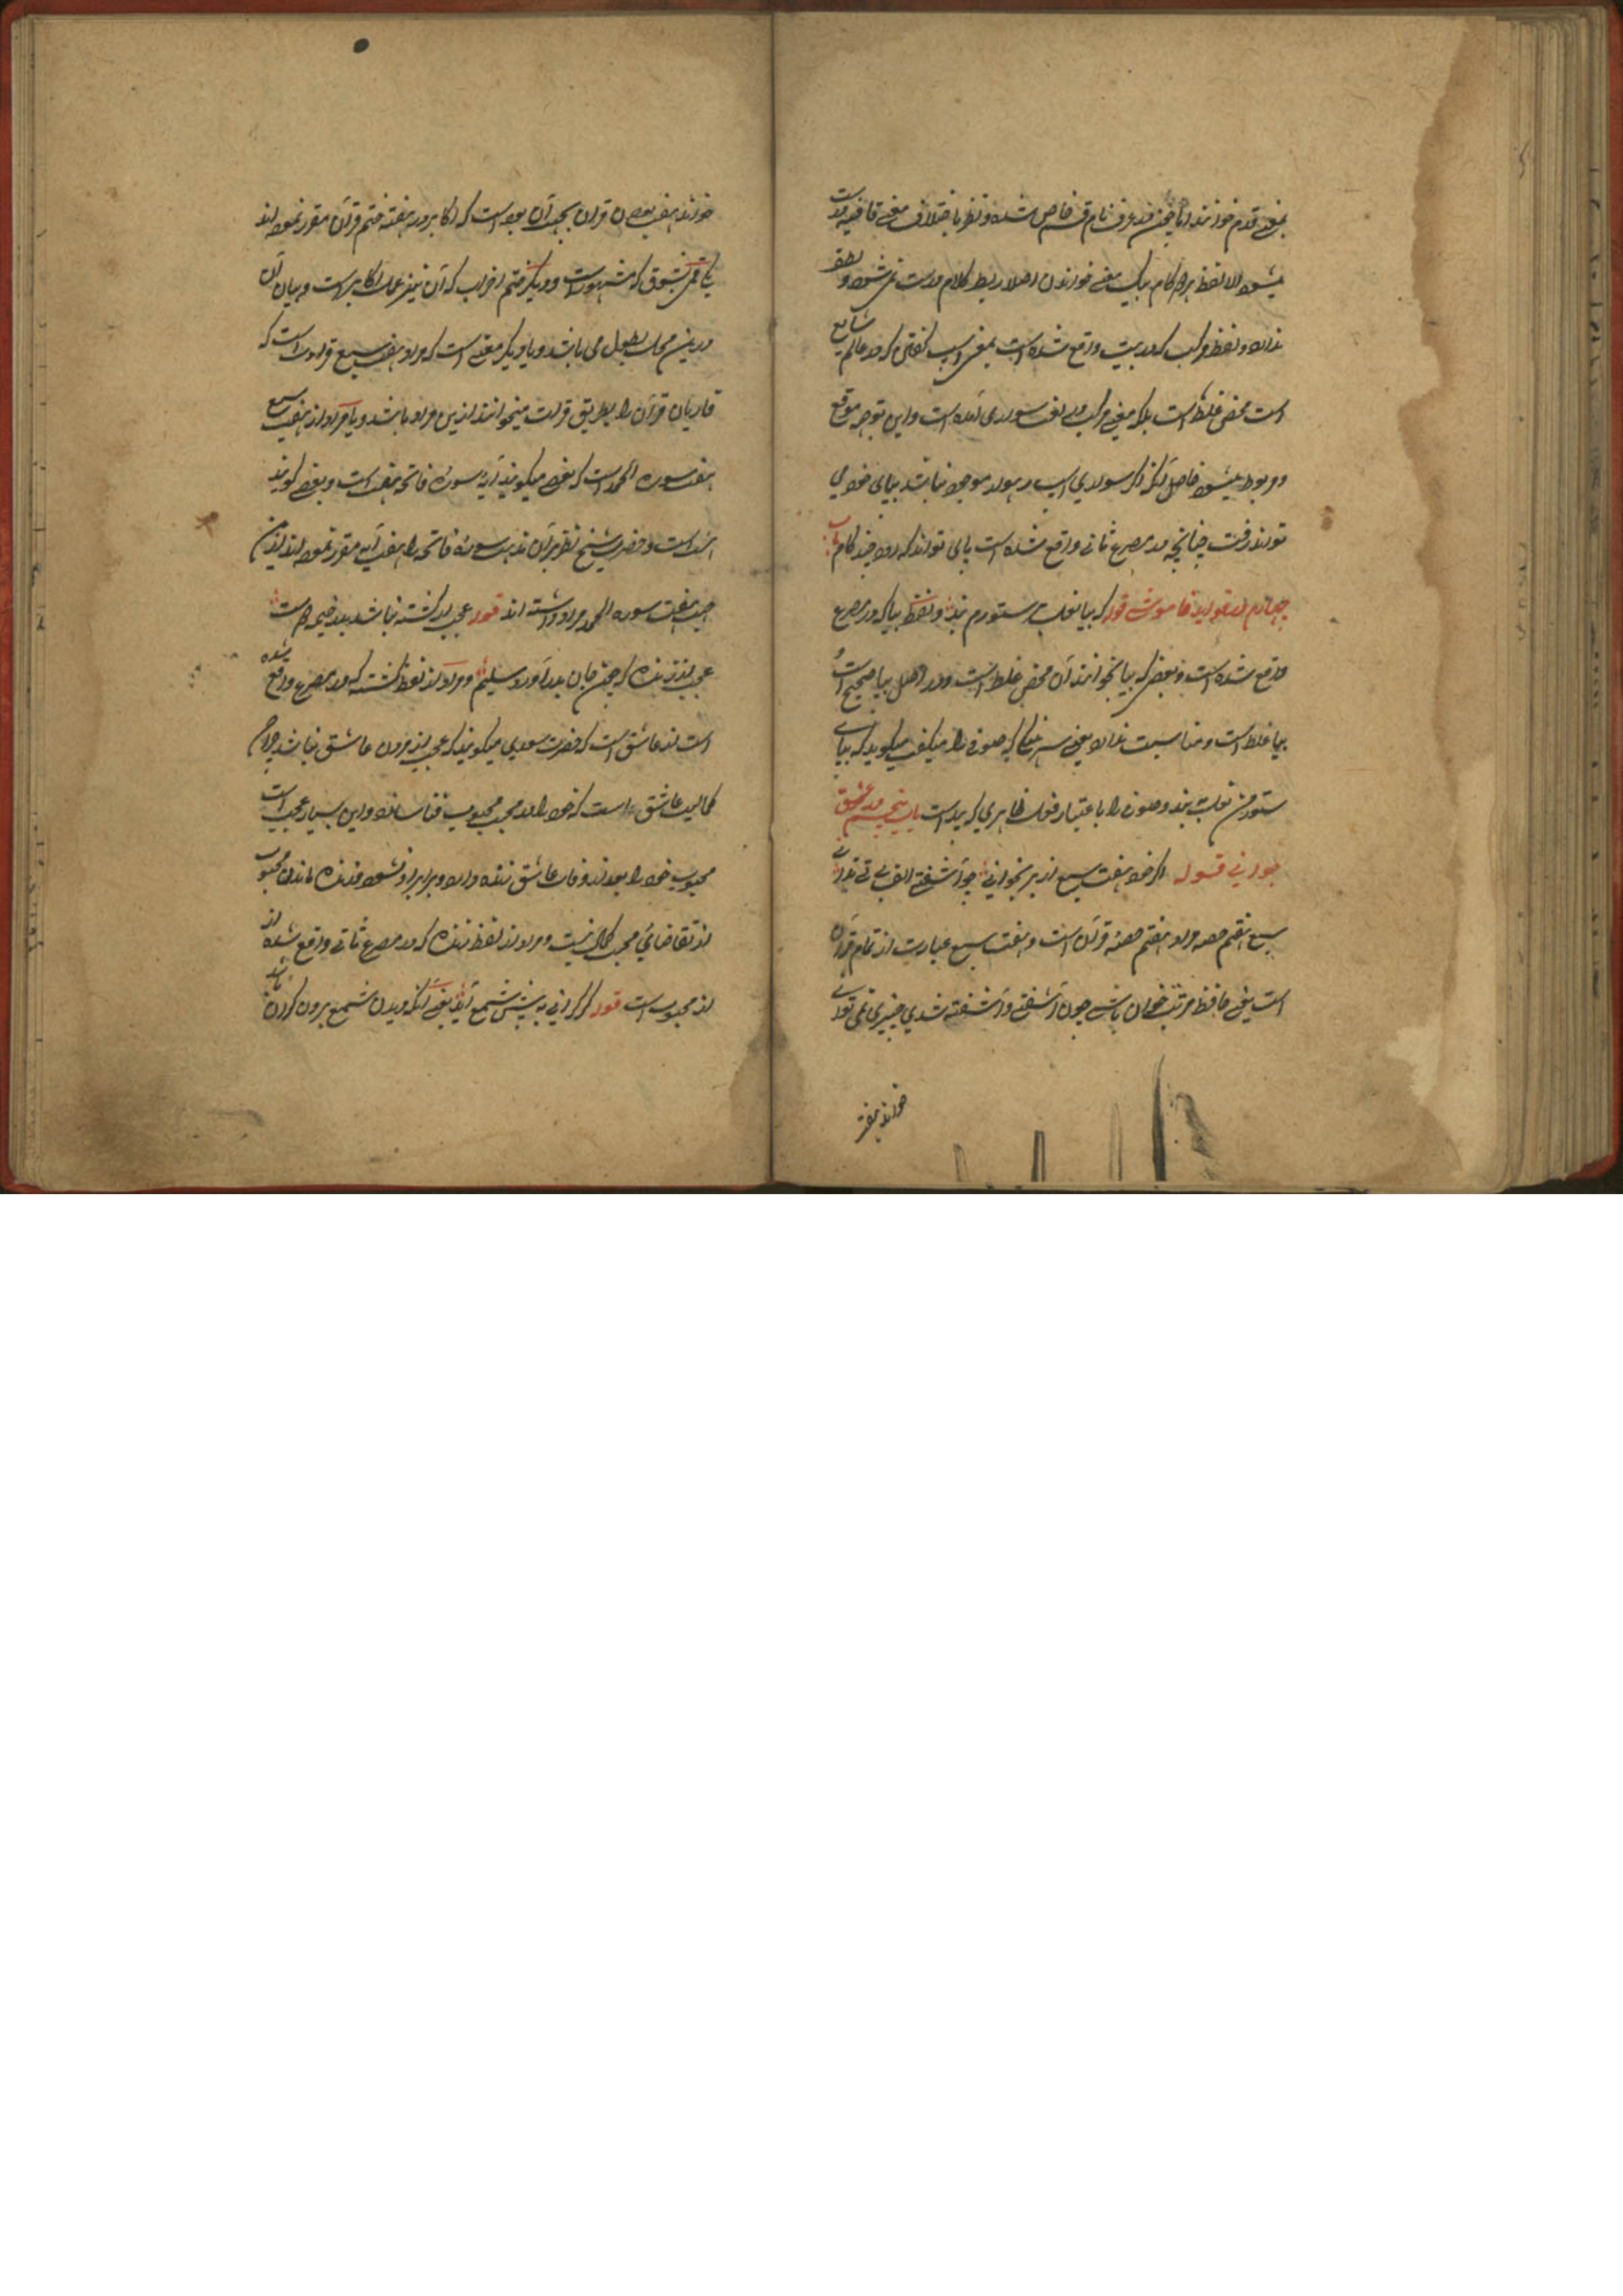 بمعنی قدم خوانند اما چون در عرف نام قسم خاص شده و نظر باختلاف معنی قافیه درست
میشود الا لفظ هر دو کام بیک معنی خواندن اصلا ربط کلام درست نمی شود و لطف
ندارد و لفظ مرکب که در بیت واقع شده است بمعنی اسب گفتن که در عالم شایع
است محض غلط است بلکه معنی مرکب در لغت سواری آمده است و این توجه موقع
و مربوط میشود حاصل آنکه اگر سواری اسپ رهوار موجود نباشد بپای خود می
تواند رفت چنانچه در مصرع ثانی واقع شده است پای تواند که رود چند کام باب
چهارم در فواید خاموشی قوله که بیا نعل بر ستورم بند و لفظ بیا که در مصرع
واقع شده است و بعضی که بپا بخوانند آن محض غلط است و در اصل بیا صحیح است و
بپا غلط است و مناسبت ندارد یعنی سرهنگی که صوفی را میگفت میگوید که بیا ای
ستور من نعل بند و صوفی را باعتبار فعل ظاهری که بد است باب پنجم در عشق
جوانی قوله اگر خود هفت سبع از بر بخوانی چو آشفتی الف بی تی ندانی
سبع هفتم حصه مراد هفتم حصهٔ قرآن است و هفت سبع عبارت از تمام قرآن
است یعنی حافظ مرتب خوان باشی چون آشفتی و آشفته شدی چیزی نمی توانی
خواند هفت
خواند هفت بودن قرآن بجهت آن بود است که اکابر در هفته ختم قرآن مقرر نموده اند
یکی فمی بشوق که مشهور است و دیگر ختم احزاب که آن نیز عمل اکابر است و بیان آن
درین محل بطول می باشد و یا دیگر معنی است که مراد هفت سبع قرات است که
قاریان قرآن را بطریق قرات میخوانند ازین مراد باشد و یا مراد از هفت سبع
هفت سوره الحمد است که بعضی میگویند آیه سورهٔ فاتحه هفت است و بعضی گویند
است و حضرت شیخ نظر بر آن مذهب سورهٔ فاتحه را هفت آیه مقرر نموده اند ازین
جهت هفت سوره الحمد مراد داشته اند قوله عجب از کشته نباشد بدر خیمه دوست
عجب از زنده که چون جان بدر آورد سلیم و مراد از لفظ کشته که در مصرع واقع شده
است از عاشق است که حضرت سعدی میگویند که عجب از مردن عاشق نباشد چرا که
کمالیت عاشق است که خود را در محبت محبوب فنا سازد و این بسیار عجب است
محبوب خود را بعد از وفات عاشق زنده دارد و برابر او نشود و زنده ماندن محبوب
از تقاضای محبت کمال نیست و مراد از لفظ زنده که در مصرع ثانی واقع شده از
از محبوب است قوله گر گرانی به پیش شمع آید یعنی آنکه دیدن شمع بیرون کردن باید